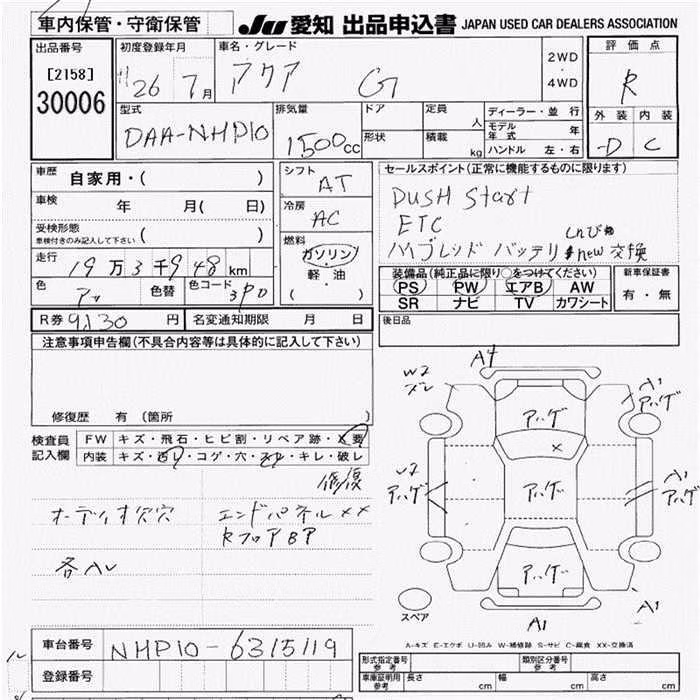 車内保管・守衛保管
JU 愛知 出品申込書 JAPAN USED CAR DEALERS ASSOCIATION
出品番号 初度登録年月 車名・グレード 評価点
[2158] H26 7月 アクア G 2WD・4WD R
30006
型式 排気量 ドア 定員 人 ディーラー・並行 外装 内装
DAA-NHP10 1500cc 形状 積載 kg モデル年式 年 D C
ハンドル 左・右
車歴 自家用・( ) シフト AT セールスポイント(正常に機能するものに限ります)
車検 年 月( 日) 冷房 AC PUSH Start
ETC
受検形態 車検付きのみ記入して下さい ( ) 燃料 ガソリン ハイブレッド バッテリ new 交換
走行 19万3千948km 軽・油 装備品(純正品に限り○をつけてください) 新車保証書
( ) PS PW エアB AW 有・無
色 色替 色コード 3PD SR ナビ TV カワシート
R券 9,130円 名変通知期限 月 日 後日品
注意事項申告欄(不具合内容等は具体的に記入して下さい)
修復歴 有 (箇所 )
検査員 FW キズ・飛石・ヒビ割・リペア跡・X要
記入欄 内装 キズ・コゲ・穴・キレ・破レ
修復
オーディオ欠穴 エンドパネルXX
RフロアBP
各AU
A4
W2 A1
ズレ アハゲ
アハゲ
X
W2 A1
アハゲ アハゲ アハゲ
アハゲ
スペア A1 A1
A-キズ E-エクボ U-凹み W-補修跡 S-サビ C-腐食 XX-交換済
車台番号 NHP10-6315119
登録番号
形式指定番号 参考 類別区分番号 参考
車庫証明用 参考 長さ cm 幅 cm 高さ cm